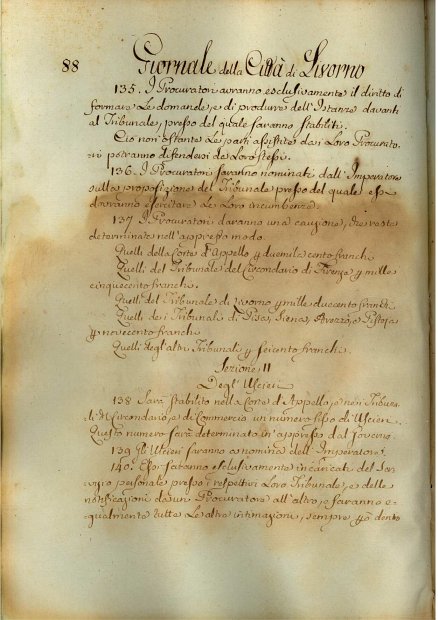 88 Giornale della Città di Livorno
135. I Procuratori avranno esclusivamente il diritto di
formare Le domande, e di produrre dell'Istanze davanti
al Tribunale, presso del quale saranno stabiliti.
Ciò non ostante Le parti assistite dai Loro Procurato-
ri potranno difendersi da Loro stesse.
136. I Procuratori saranno nominati dall'Imperatore
sulla proposizione del Tribunale presso del quale essi
dovranno esercitare Le Loro incumbenze.
137 I Procuratori daranno una cauzione, che resta
determinata nell'appresso modo.
Quelli della Corte d'Appello p duemila cento franchi
Quelli del Tribunale del Circondario di Firenze p mille
cinquecento franchi.
Quelli del Tribunale di Livorno p mille duecento franchi.
Quelli dei Tribunali di Pisa, Siena, Arezzo, e Pistoja
p novecento franchi
Quelli degl'altri Tribunali p seicento franchi.
Sezione II
Degl'Uscieri
138 Sarà stabilito nella Corte d'Appello, e nei Tribuna-
li di Circondario, e di Commercio un numero fisso di Uscieri.
Questo numero sarà determinato in appresso dal Governo
139 Gl'Uscieri saranno a nomina dell'Imperatore.
140. Essi saranno esclusivamente incaricati del Ser-
vizio personale presso i rispettivi Loro Tribunale, e delle
notificazioni da un Procuratore all'altro, e faranno e-
gualmente tutte Le altre intimazioni, sempre però dentro